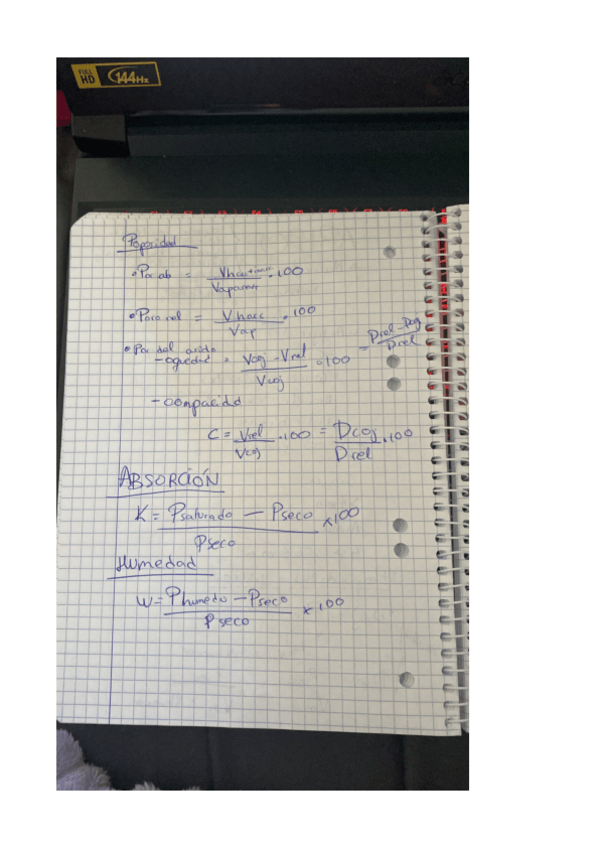 FULL HD 144Hz
Porosidad
• Por ab = Vhac+inac / Vaparen · 100
• Poro rel = Vhacc / Vap · 100
• Por del arido
- oquedad = Vcoj - Vrel / Vcoj · 100 = Drel - Dcoj / Drel
- compacidad
C = Vrel / Vcoj · 100 = Dcoj / Drel · 100
ABSORCIÓN
K = Psaturado - Pseco / Pseco x 100
Humedad
W = Phumedo - Pseco / Pseco x 100